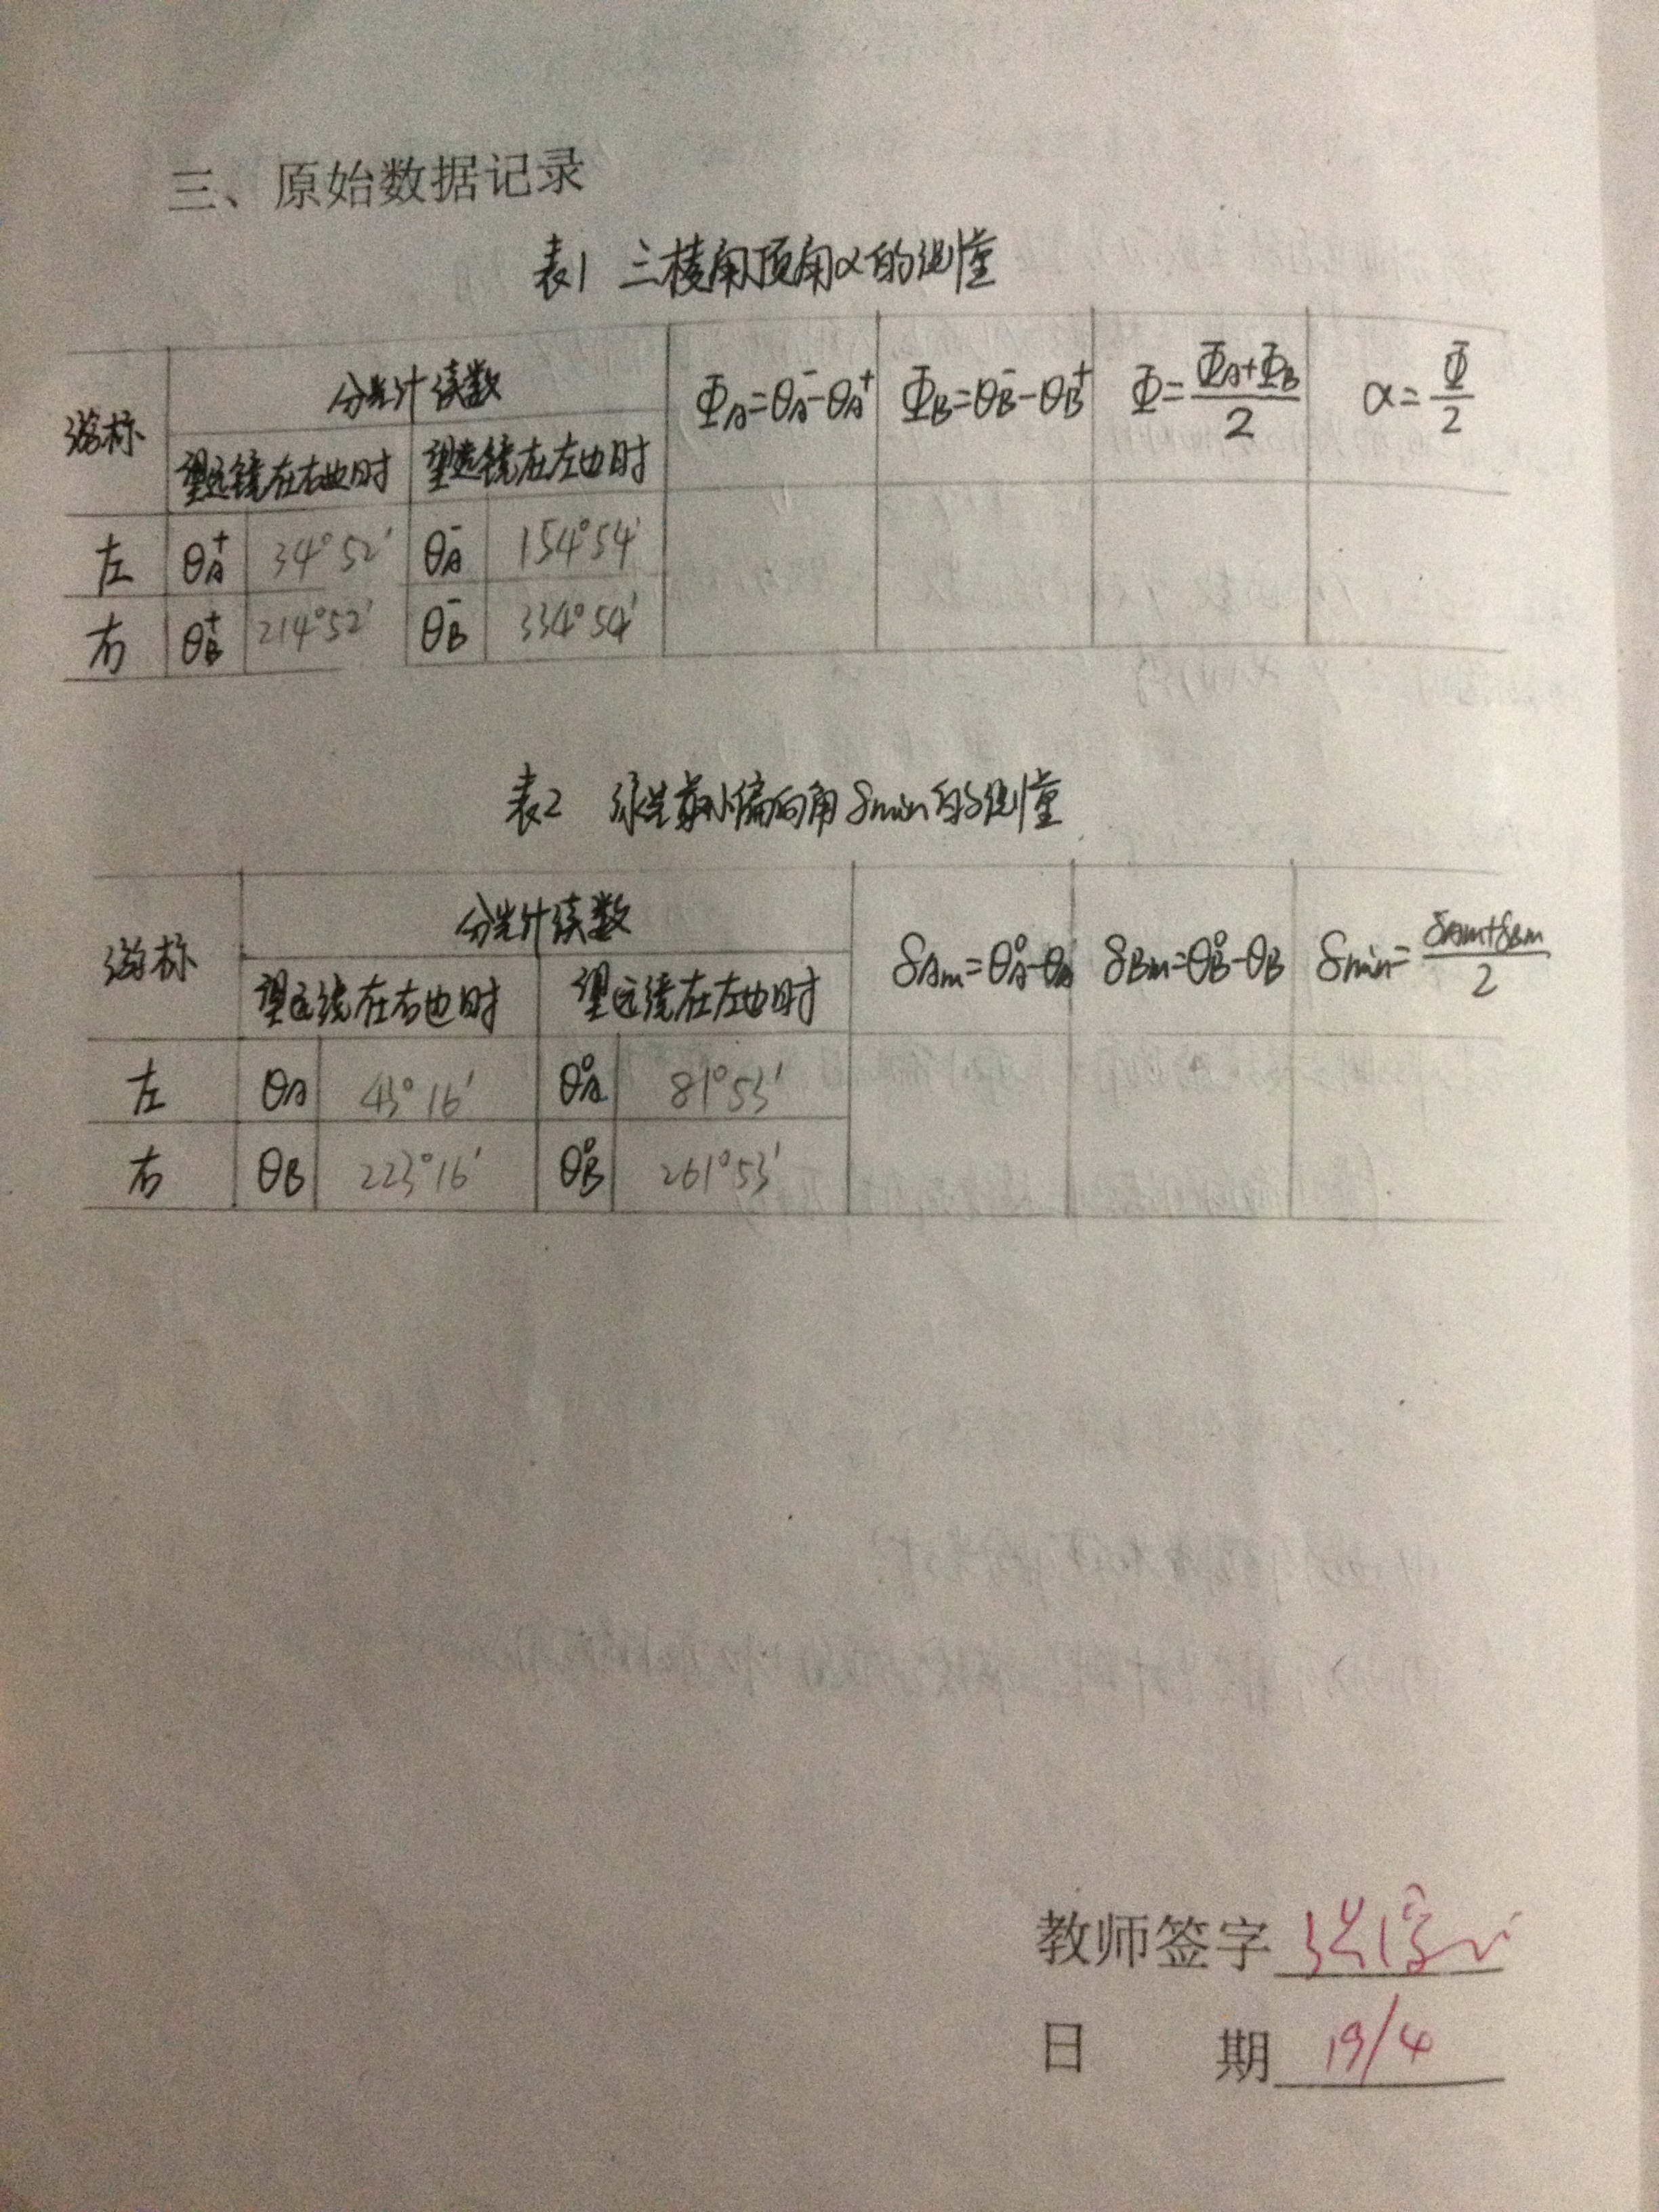 三、原始数据记录
表1 三棱角顶角α的测量
游标 分光计读数 Φ_A=θ_A^- - θ_A^+ Φ_B=θ_B^- - θ_B^+ Φ=(Φ_A+Φ_B)/2 α=Φ/2
望远镜在右边时 望远镜在左边时
左 θ_A^+ 34°52′ θ_A^- 154°54′
右 θ_B^+ 214°52′ θ_B^- 334°54′
表2 绿光最小偏向角δmin的测量
游标 分光计读数 δ_Am=θ_A^0-θ_A δ_Bm=θ_B^0-θ_B δmin=(δ_Am+δ_Bm)/2
望远镜在右边时 望远镜在左边时
左 θ_A 43°16′ θ_A^0 81°53′
右 θ_B 223°16′ θ_B^0 261°53′
教师签字
日 期 19/4